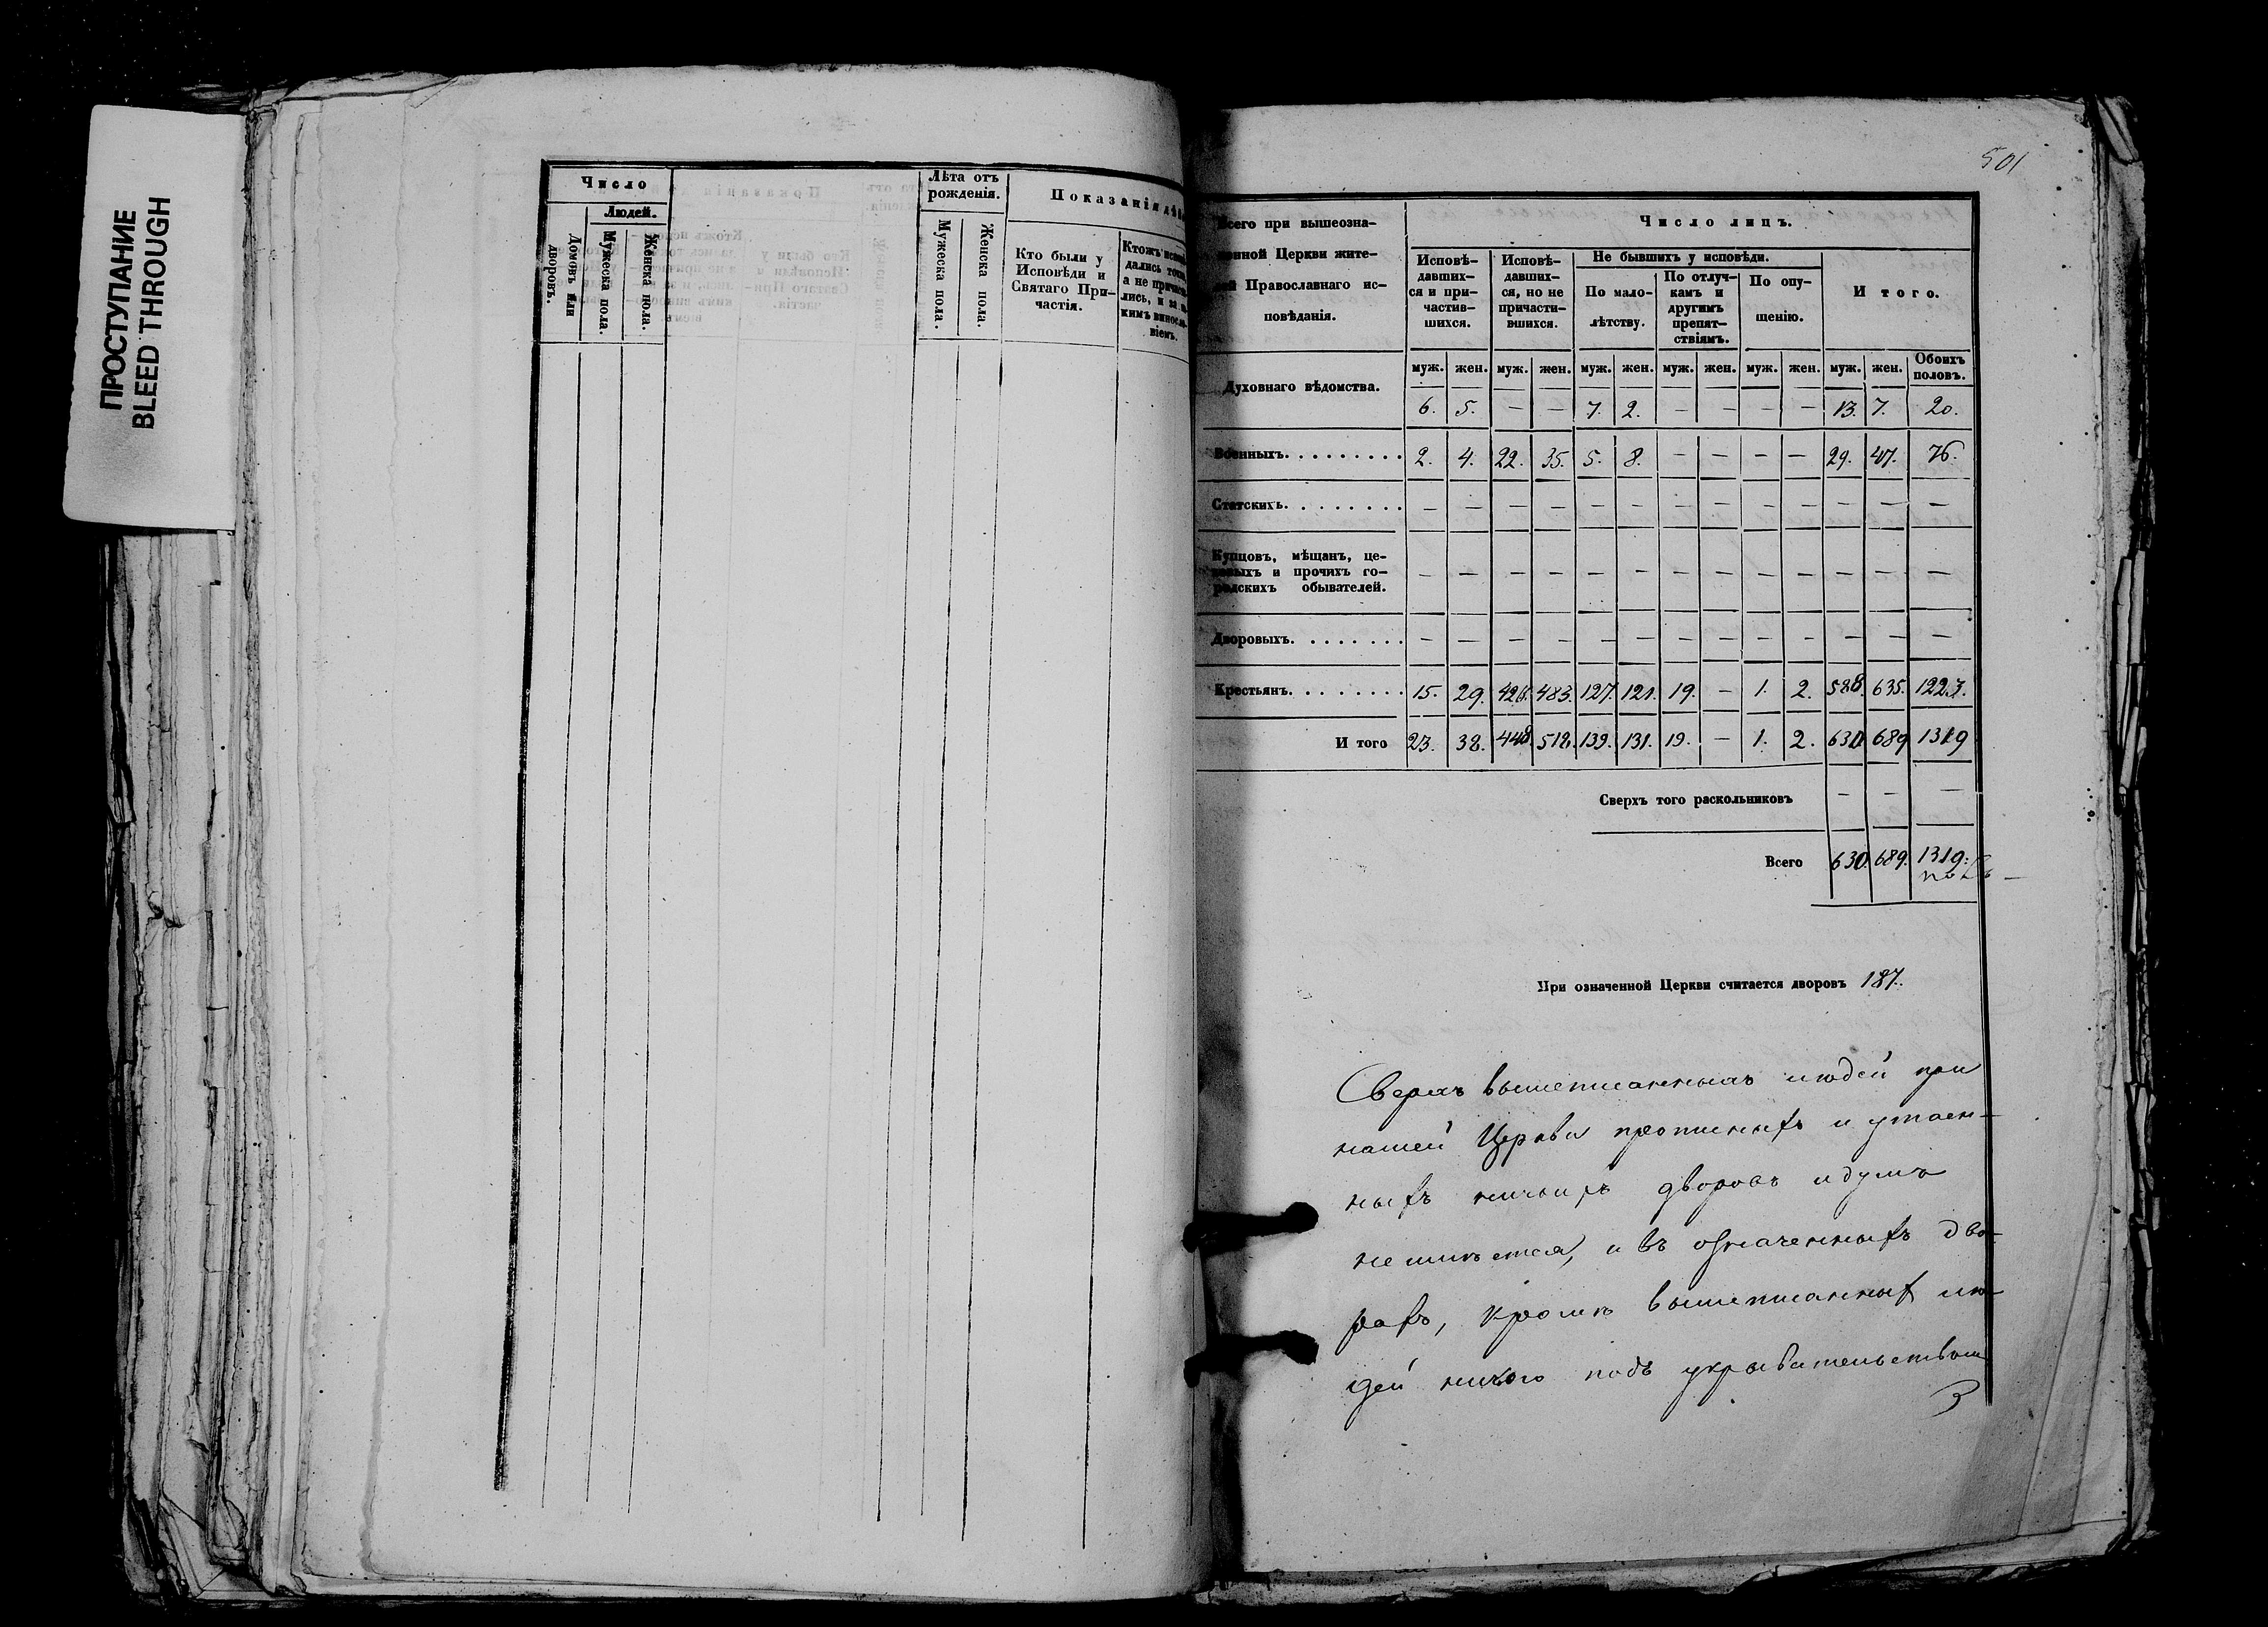 ПРОСТУПАНИЕ
BLEED THROUGH
Число
Людей.
Домовъ или дворовъ.
Мужеска пола.
Женска пола.
Лѣта отъ
рожденія.
Мужеска пола.
Женска пола.
Показанія
Кто были у
Исповѣди и
Святаго При-
частія.
501
Всего при вышеозна-
ченной Церкви жите-
лей Православнаго ис-
повѣданія.
Число лицъ.
Исповѣ-
давших-
ся и при-
частив-
шихся.
Исповѣ-
давших-
ся, но не
причасти-
вшихся.
Не бывшихъ у исповѣди.
По мало-
лѣтству.
По отлуч-
камъ и
другимъ
препят-
ствіямъ.
По опу-
щенію.
Итого.
муж. жен. муж. жен. муж. жен. муж. жен. муж. жен. муж. жен. Обоихъ половъ.
Духовнаго вѣдомства.
6. 5. — — 7. 2. — — — — 13. 7. 20.
Военныхъ. 2. 4. 22. 35. 5. 8. — — — — 29. 47. 76.
Статскихъ. — — — — — — — — — — — — —
Купцовъ, мѣщанъ, це-
ховыхъ и прочихъ го-
родскихъ обывателей. — — — — — — — — — — — — —
Дворовыхъ. — — — — — — — — — — — — —
Крестьянъ. 15. 29. 426. 483. 127. 121. 19. — 1. 2. 588. 635. 1223.
И того 23. 38. 448. 518. 139. 131. 19. — 1. 2. 630. 689 1319
Сверхъ того раскольниковъ — — —
Всего 630. 689. 1319.
При означенной Церкви считается дворовъ 187.
Сверхъ вышеписанныхъ людей при
нашей Церкви прописныхъ и утаен-
ныхъ ничьихъ дворовъ и душъ
не имѣется, и въ означенныхъ дво-
рахъ, кромѣ вышеписанных лю-
дей никого подъ укрывательствомъ